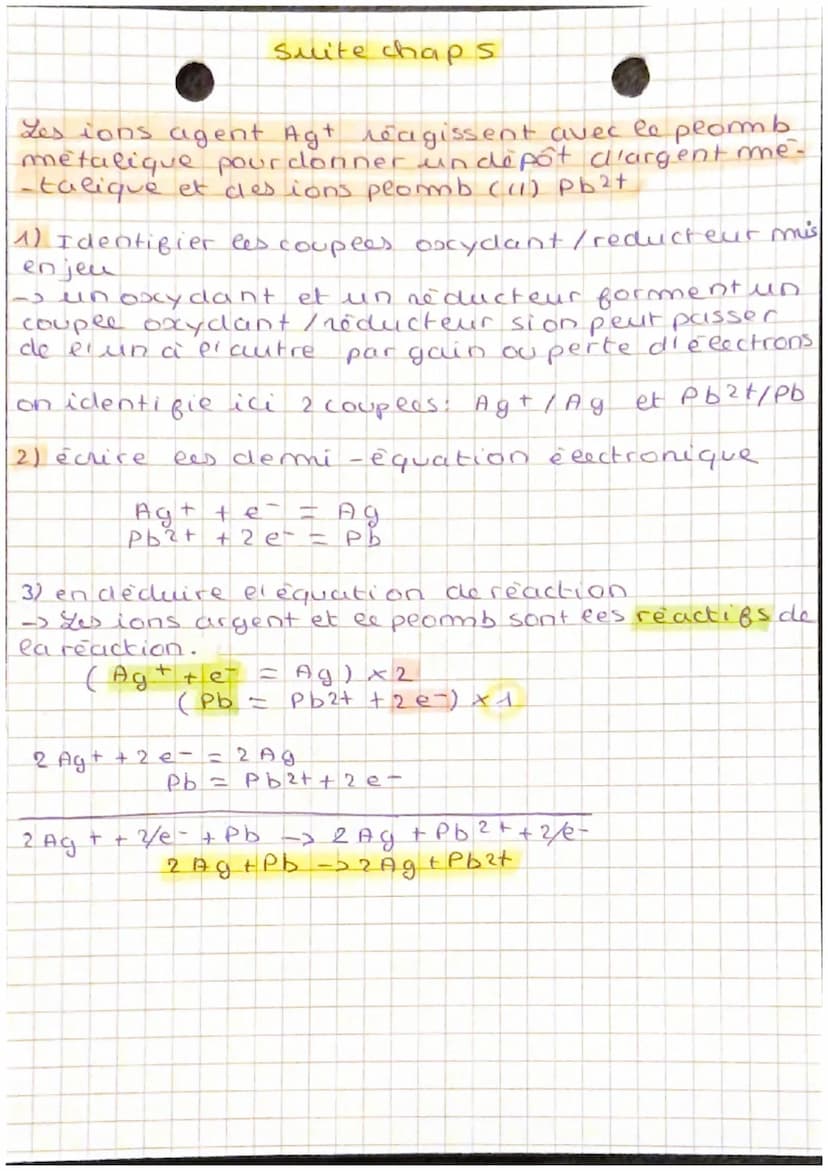 suite chap 5
Les ions agent Ag+ réagissent avec le plomb
métalique pour donner un dépôt d'argent mé-
-talique et des ions plomb (II) Pb2+
1) Identifier les couples oxydant / reducteur mis
en jeu
-> un oxydant et un réducteur forment un
couple oxydant / réducteur si on peut passer
de l'un à l'autre par gain ou perte d'électrons
on identifie ici 2 couples: Ag+ / Ag et Pb2+/Pb
2) écrire les demi - équation électronique
Ag+ + e- = Ag
Pb2+ + 2e- = Pb
3) en déduire l'équation de réaction
-> Les ions argent et le plomb sont les réactifs de
la réaction.
( Ag+ + e- = Ag ) x 2
( Pb = Pb2+ + 2e-) x 1
2 Ag+ + 2 e- = 2 Ag
Pb = Pb2+ + 2 e-
2 Ag+ + 2/e- + Pb -> 2 Ag + Pb2+ + 2/e-
2 Ag + Pb -> 2 Ag + Pb2+